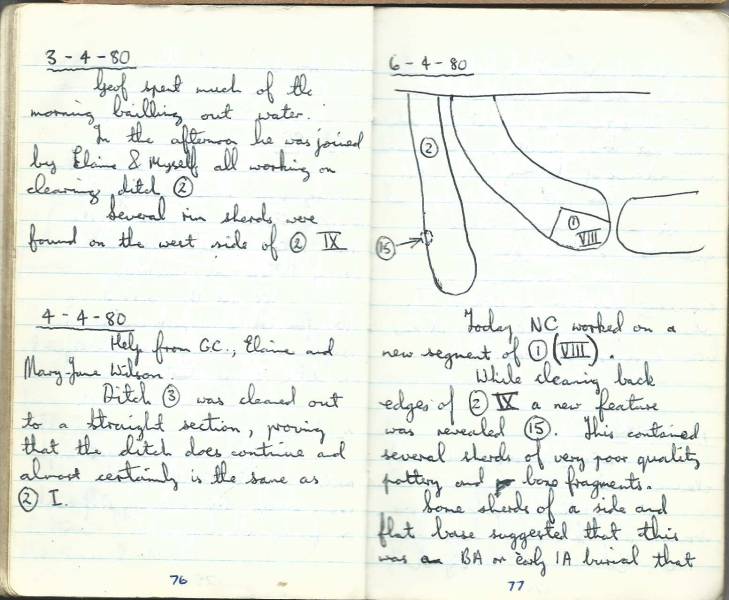 3-4-80
Geof spent much of the
morning bailling out water.
In the afternoon he was joined
by Elaine & Myself all working on
clearing ditch ②
Several rim sherds were
found on the west side of ② IX
4-4-80
Help from G.C., Elaine and
Mary-Jane Wilson.
Ditch ③ was cleared out
to a straight section, proving
that the ditch does continue and
almost certainly is the same as
② I.
76
6-4-80
②
①
VIII
⑮
Today NC worked on a
new segment of ① (VIII).
While cleaning back
edges of ② IX a new feature
was revealed ⑮. This contained
several sherds of very poor quality
pottery and bone fragments.
Some sherds of a side and
flat base suggested that this
was a BA or early IA burial that
77